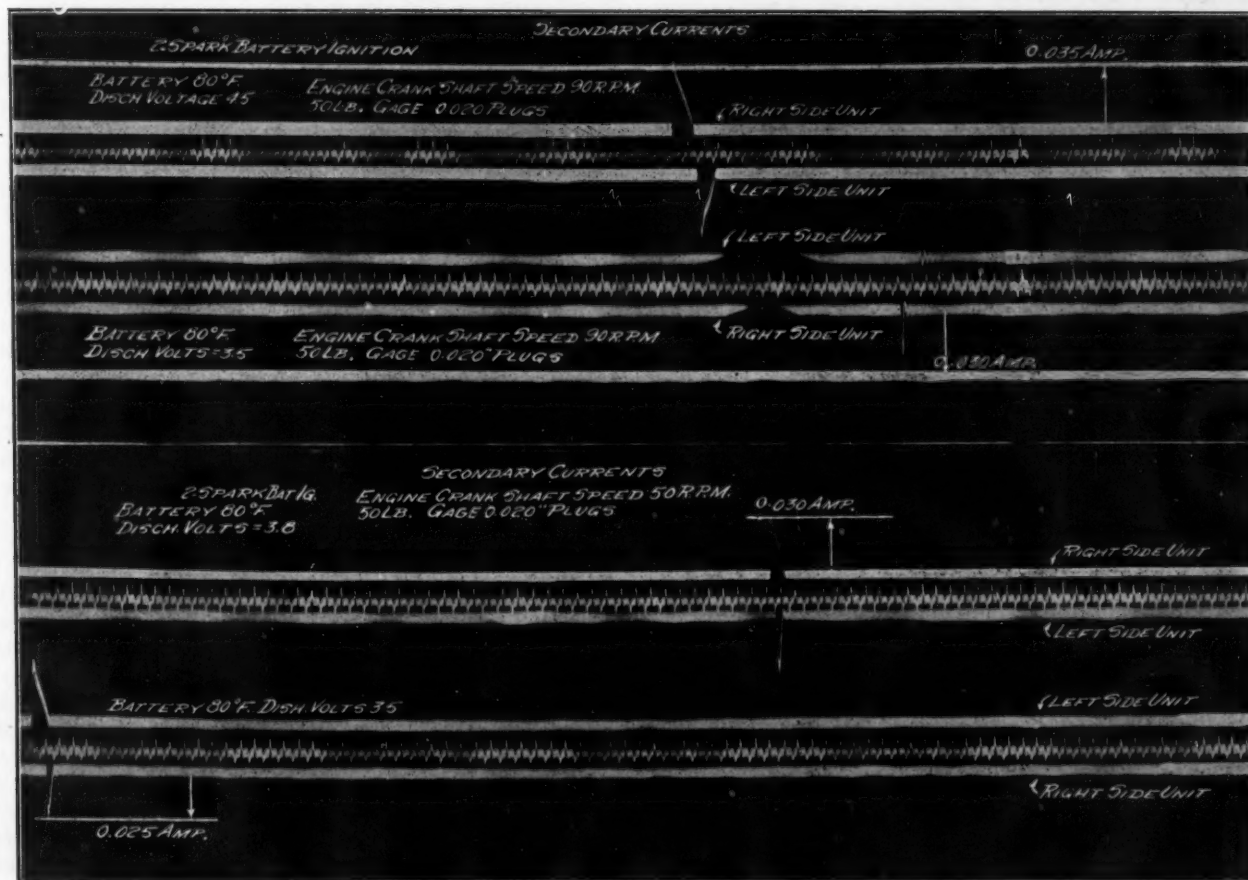 SECONDARY CURRENTS
2 SPARK BATTERY IGNITION
0.035 AMP.
BATTERY 80°F.
DISCH VOLTAGE 45
ENGINE CRANK SHAFT SPEED 90 R.P.M.
50 LB. GAGE 0.020 PLUGS
RIGHT SIDE UNIT
LEFT SIDE UNIT
LEFT SIDE UNIT
RIGHT SIDE UNIT
BATTERY 80°F.
DISCH VOLTS=3.5
ENGINE CRANK SHAFT SPEED 90 R.P.M
50 LB. GAGE 0.020" PLUGS
0.030 AMP.
SECONDARY CURRENTS
2-SPARK BAT IG.
BATTERY 80°F
DISCH. VOLTS=3.8
ENGINE CRANK SHAFT SPEED 50 R.P.M.
50 LB. GAGE 0.020" PLUGS
0.030 AMP.
RIGHT SIDE UNIT
LEFT SIDE UNIT
BATTERY 80°F. DISH. VOLTS 35
LEFT SIDE UNIT
RIGHT SIDE UNIT
0.025 AMP.